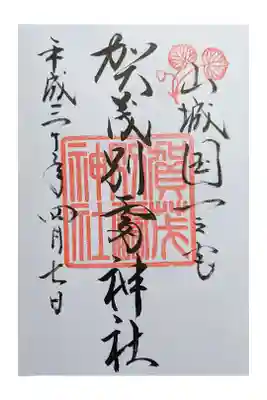 山城国一之宮
賀茂別雷神社
平成三十年四月七日
賀茂
別雷
神社